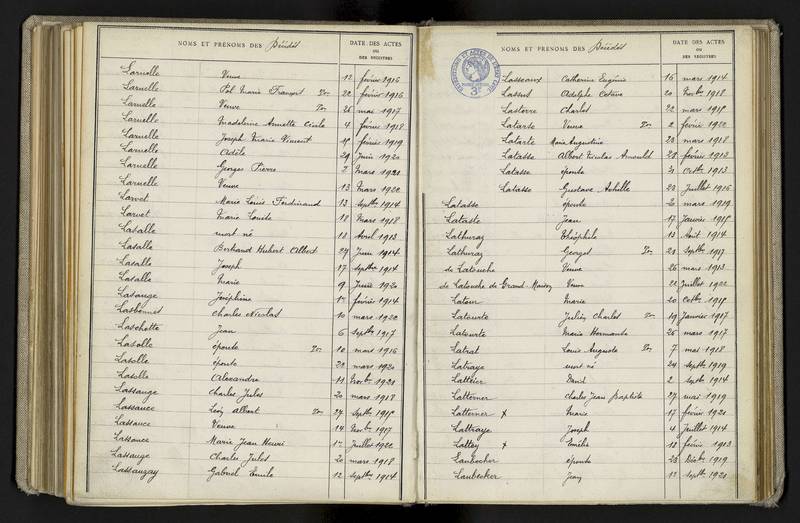 NOMS ET PRÉNOMS DES Décédés
DATE DES ACTES
OU
DES REGISTRES
Laruelle Veuve 12 février 1916
Laruelle Marie François Tr. 22 février 1916
Laruelle Veuve Tr. 26 mai 1917
Laruelle Madeleine Annette Cécile 4 février 1918
Laruelle Joseph Marie Vincent février 1919
Laruelle Adèle 29 Juin 1920
Laruelle Georges Pierre 2 Mars 1921
Laruelle Veuve 13 Mars 1922
Larvet Marie Louise Ferdinand 13 Septbre 1914
Larvet Marie Louise 18 Mars 1918
Lasalle mort né 18 Avril 1913
Lasalle Bertrand Hubert Albert 24 Juin 1914
Lasalle Joseph 17 Septbre 1914
Lasalle Marie 9 Juin 1920
Lasauge Joséphine 1er février 1914
Lasbennes Charles Nicolas 10 mars 1920
Laschette Jean 6 Septbre 1917
Lasolle épouse Tr. 10 mars 1916
Lasolle épouse 20 mars 1920
Lasolle Alexandre 11 Novbre 1921
Lassauge Charles Jules 20 mars 1918
Lassauce Léon Albert Tr. 27 Septbre 1915
Lassauce Veuve 14 Novbre 1917
Lassauce Marie Jean Henri 1er Juillet 1922
Lassauge Charles Jules 20 mars 1918
Lassauzay Gabriel Emile 12 Septbre 1914
NOMS ET PRÉNOMS DES Décédés
DATE DES ACTES
OU
DES REGISTRES
Lasseaux Catherine Eugénie 16 mars 1914
Lassus Adolphe 20 Novbre 1918
Lasterre Charles 22 mars 1915
Latarse Veuve Tr. 2 février 1920
Latarte Marie Augustine 23 mars 1918
Latasse Albert Nicolas Arnould 28 février 1913
Latasse épouse 31 Octbre 1913
Latasse Gustave Achille 22 Juillet 1916
Latasse épouse 2 mars 1919
Lataste Jean 17 Janvier 1915
Lathuraz Théophile 13 Août 1914
Lathuraz Georges Tr. 21 Septbre 1917
de Latouche Veuve 26 mars 1913
de Latouche de Grand-Maison Veuve 22 Juillet 1922
Latour Marie 20 Octbre 1915
Latourte Julien Charles Tr. 19 Janvier 1917
Latourte Marie Hermante 26 mars 1917
Latrat Louis Auguste Tr. 7 mai 1918
Latraye mort né 24 Septbre 1919
Lattelier David 2 Septbre 1914
Latterner Charles Jean Baptiste 27 mai 1919
Latterner x Marie 17 février 1921
Lattraye Joseph 4 Juillet 1914
Lattey x Emélie 12 février 1913
Laubecher épouse 23 Décbre 1919
Laubecker Jean 11 Septbre 1921